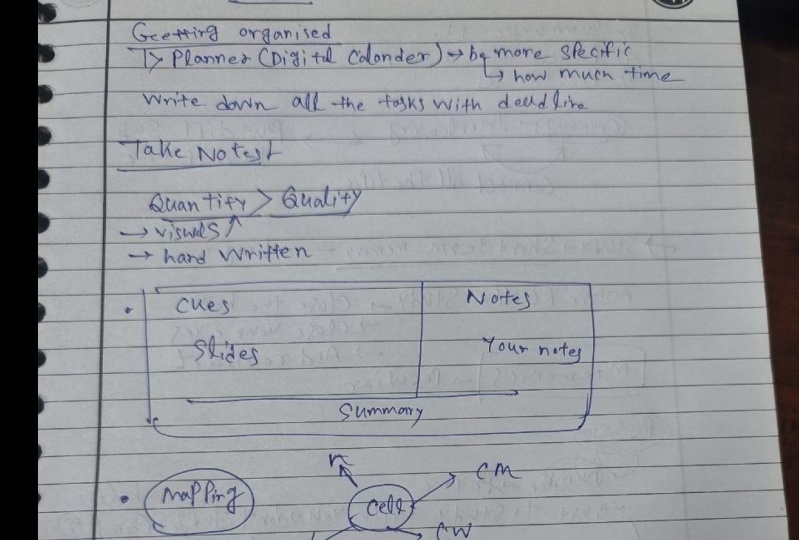 Geetting organised
1> Planner (Digital Calander) → be more specific
↳ how much time
Write down all the tasks with deadline
Take Notes
Quantity > Quality
→ visuals
→ hand written
Cues
Notes
Slides
Your notes
Summary
Mapping
Cell
n
CM
CW